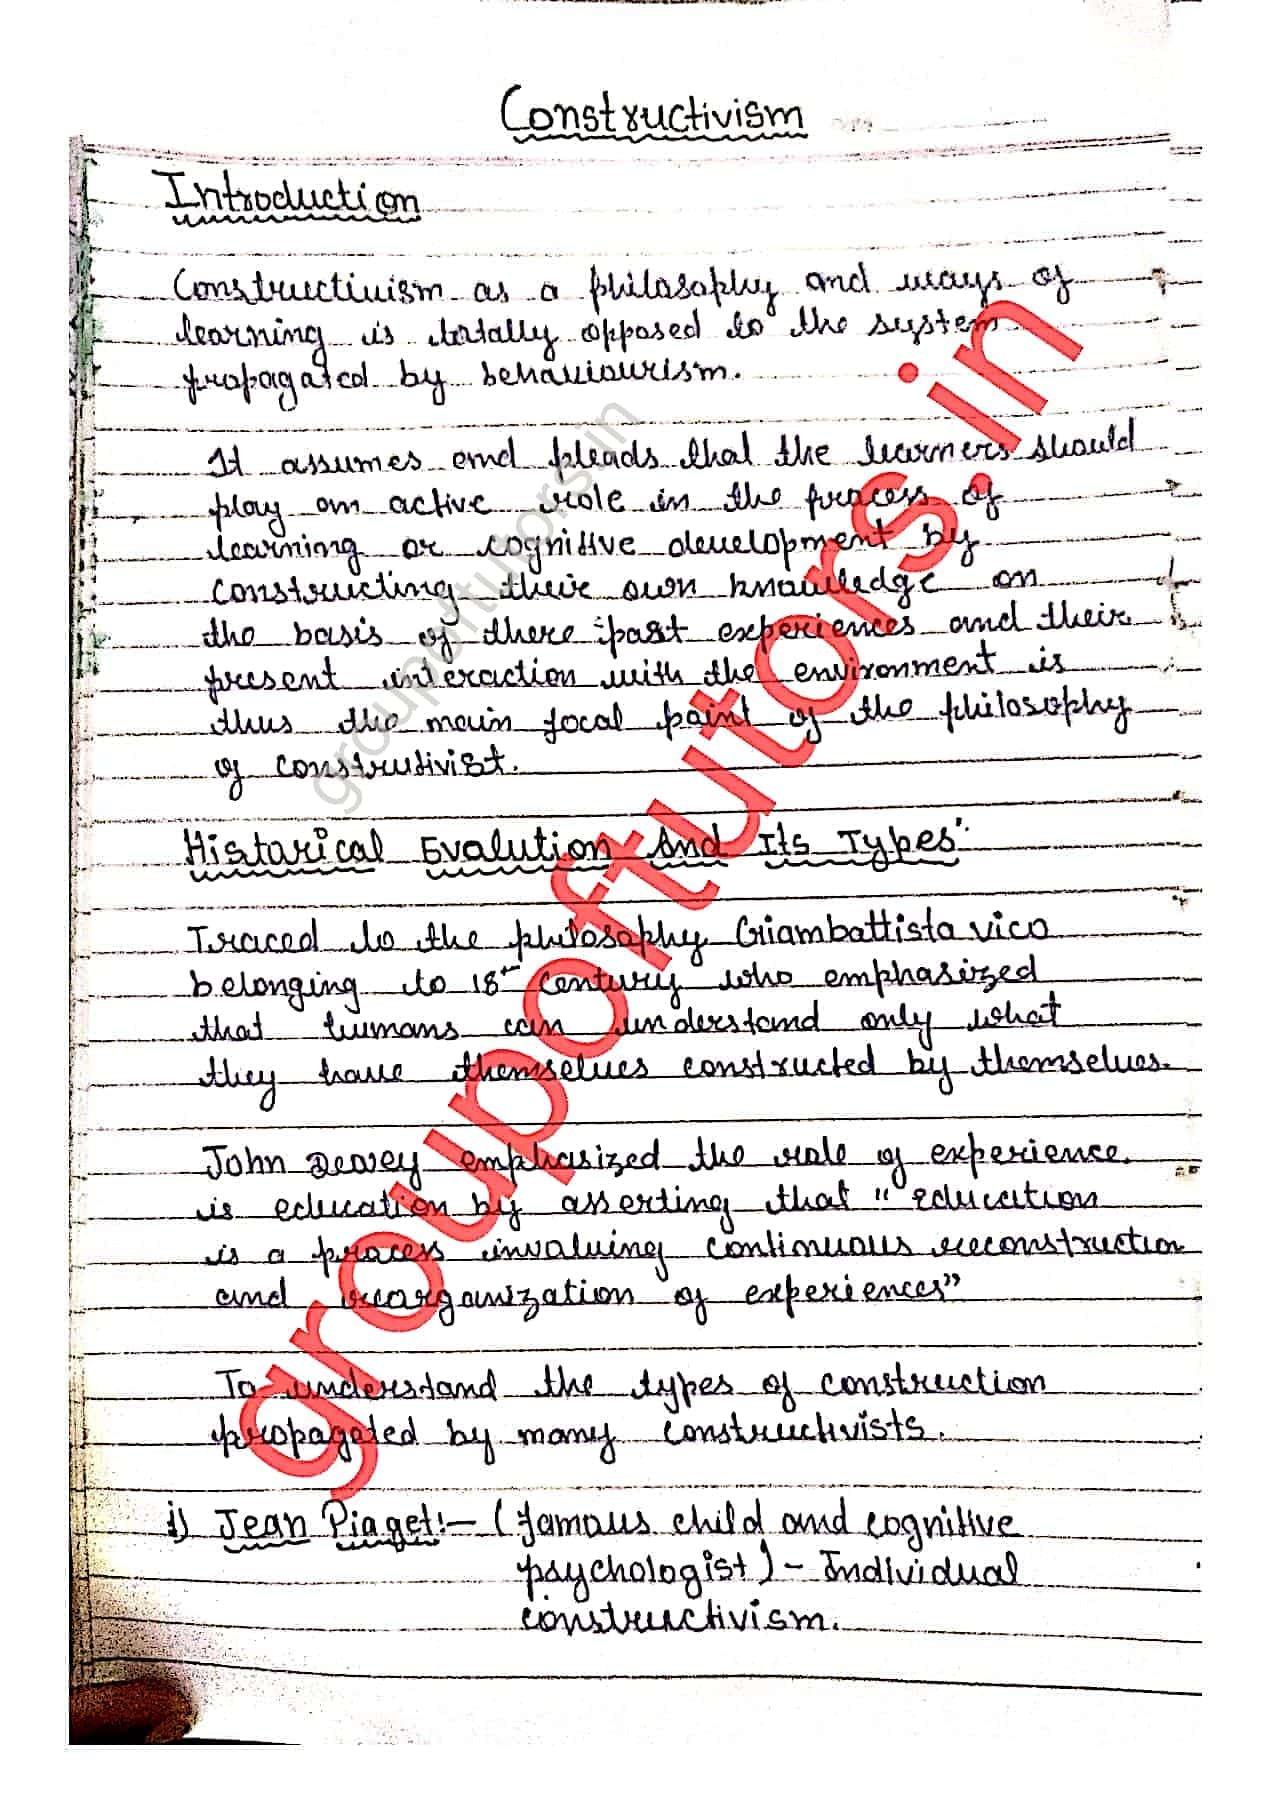 Constructivism
Introduction
Constructivism as a philosophy and ways of
learning is totally opposed to the system
propagated by behaviourism.
It assumes and pleads that the learners should
play an active role in the process of
learning or cognitive development by
constructing their own knowledge on
the basis of there past experiences and their
present interaction with the environment is
thus the main focal point of the philosophy
of construtivist.
Historical Evalution And Its Types:
Traced to the philosophy Giambattista vico
belonging to 18th century who emphasized
that humans can understand only what
they have themselves constructed by themselves.
John Dewey emphasized the role of experience
is education by asserting that "education
is a process involving continuous reconstruction
and reorganization of experiences"
To understand the types of construction
propagated by many constructivists.
i) Jean Piaget:- (famous child and cognitive
psychologist) - Individual
constructivism.
groupoftutors.in
groupoftutors.in